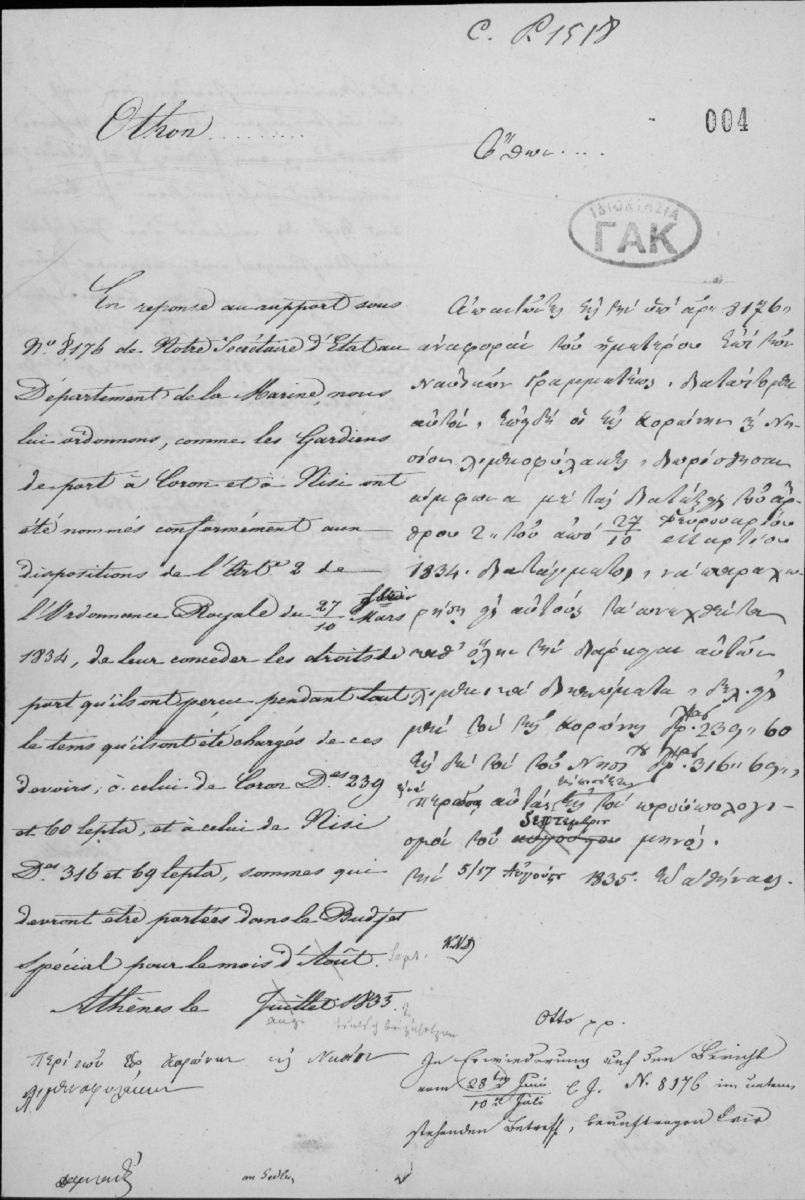 C. P. 1518
004
Othon..........
Ὄθων....
ΙΔΙΟΚΤΗΣΙΑ
ΓΑΚ
En reponse au rapport sous
No 8176 de Notre Secrétaire d'Etat au
Département de la Marine, nous
lui ordonnons, comme les Gardiens
de port à Coron et à Nisi ont
été nommés conformément aux
dispositions de l'Arte 2 de
l'Ordonnance Royale du 27/10 Mars
1834, de leur conceder les droits de
port qu'ils ont perçu pendant tout
le tems qu'ils ont été chargés de ces
devoirs; à celui de Coron Des 239
et 60 lepta, et à celui de Nisi
Des 316 et 69 lepta, sommes qui
devront être portées dans le Budjet
spécial pour le mois d'Août. Sept.
Athènes le Juillet 1835.
aug.
Ἀπαντῶντες εἰς τὴν ὑπ' ἀρ. 8176
ἀναφορὰν τοῦ ἡμετέρου ἐπὶ τῶν
Ναυτικῶν Γραμματέως, διατάττομεν
αὐτόν, ἐπειδὴ οἱ τῆς Κορώνης καὶ Νη-
σίου λιμενοφύλακες διωρίσθησαν
σύμφωνα μὲ τὰς διατάξεις τοῦ ἄρ-
θρου 2 τοῦ ἀπὸ 27/10 Φεβρουαρίου Μαρτίου
1834 διατάγματος, νὰ παραχω-
ρήση εἰς αὐτοὺς τὰ
καθ' ὅλην τὴν διάρκειαν αὐτῶν
λιμενικὰ δικαιώματα,
μὲν τὸν τῆς Κορώνης δρ. 239 60
εἰς δὲ τὸν τοῦ Νησίου δρ. 316 69
αὐτὰς εἰς τὸν προϋπολογι-
σμὸν τοῦ αὐγούστου Σεπτεμβρίου μηνός.
τὴν 5/17 Αὐγούστου 1835. ἐν Ἀθήναις.
Περὶ τῶν Κορώνην καὶ Νησίον
λιμενοφυλάκων
Otto pp.
In Erwiederung auf den Bericht
vom 28ten Juni / 10ten Juli l. J. N. 8176 im unten
stehenden Betreff, beauftragen Wir